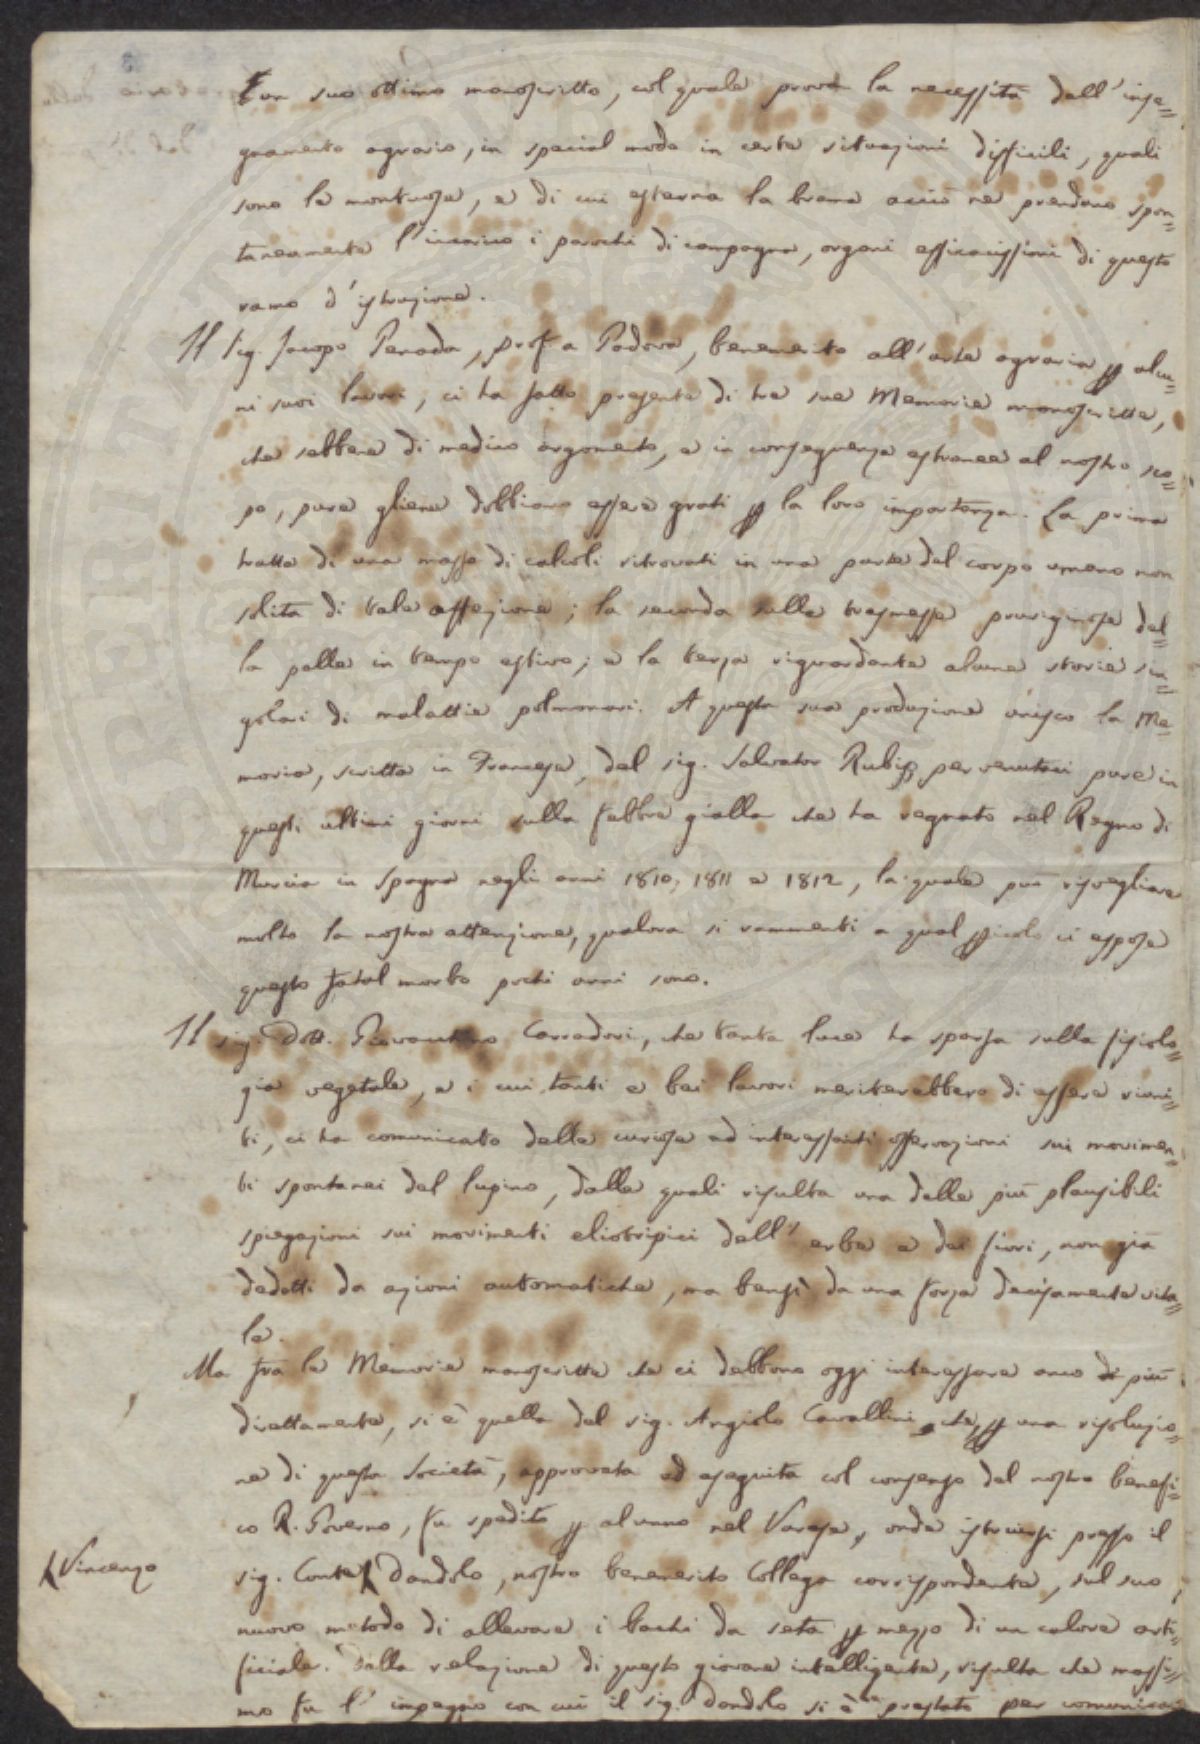 E un suo ottimo manoscritto, col quale prova la necessità dell'inse=
gnamento agrario, in special modo in certe situazioni difficili, quali
sono le montuose, e di cui esterna la brama acciò ne prendano spon=
taneamente l'incarico i parochi di campagna, organi efficacissimi di questo
ramo d'istruzione.
Il Sig. Jacopo Penada, prof. a Padova, benemerito all'arte agraria p alcu=
ni suoi lavori, ci ha fatto presente di tre sue Memorie manoscritte,
che sebbene di medico argomento, e in conseguenza estranee al nostro sco=
po, pure gliene dobbiamo essere grati p la loro importanza. La prima
tratta di una massa di calcoli ritrovati in una parte del corpo umano non
solita di tale affezione; la seconda sulle pruriginose del=
la pelle in tempo estivo; e la terza riguardante alcune storie sin=
golari di malattie polmonari. A questa sua produzione unisco la Me=
moria, scritta in Francese, del sig. Salvator pervenutaci pure in
questi ultimi giorni sulla febbre gialla che ha regnato nel Regno di
Murcia in Spagna negli anni 1810, 1811 e 1812, la quale può risvegliare
molto la nostra attenzione, qualora si rammenti a qual pericolo ci espose
questo fatal morbo pochi anni sono.
Il sig. Dott. Carradori, che tanta luce ha sparsa sulla fisiolo=
gia vegetale, e i cui tanti e bei lavori meriterebbero di essere riuni=
ti, ci ha comunicato delle curiose ed interessanti osservazioni sui movimen=
ti spontanei del lupino, dalle quali risulta una delle più plausibili
spiegazioni sui movimenti eliotripici dell'erbe e dei fiori, non già
dedotti da azioni automatiche, ma bensì da una forza decisamente vita=
le.
Ma fra le Memorie manoscritte che ci debbono oggi interessare anco di più
direttamente, si è quella del sig. Angiolo Cavallini, che, p una risoluzio=
ne di questa Società, approvata ed eseguita col consenso del nostro benefi=
co R. Governo, fu spedito p alunno nel Varese, onde istruirsi presso il
sig. Conte Dandolo, nostro benemerito Collega corrispondente, sul suo
Vincenzo
nuovo metodo di allevare i bachi da seta p mezzo di un calore arti=
ficiale. Dalla relazione di questo giovane intelligente, risulta che massi=
mo fu l'impegno con cui il sig. Dandolo si è prestato per comunicar